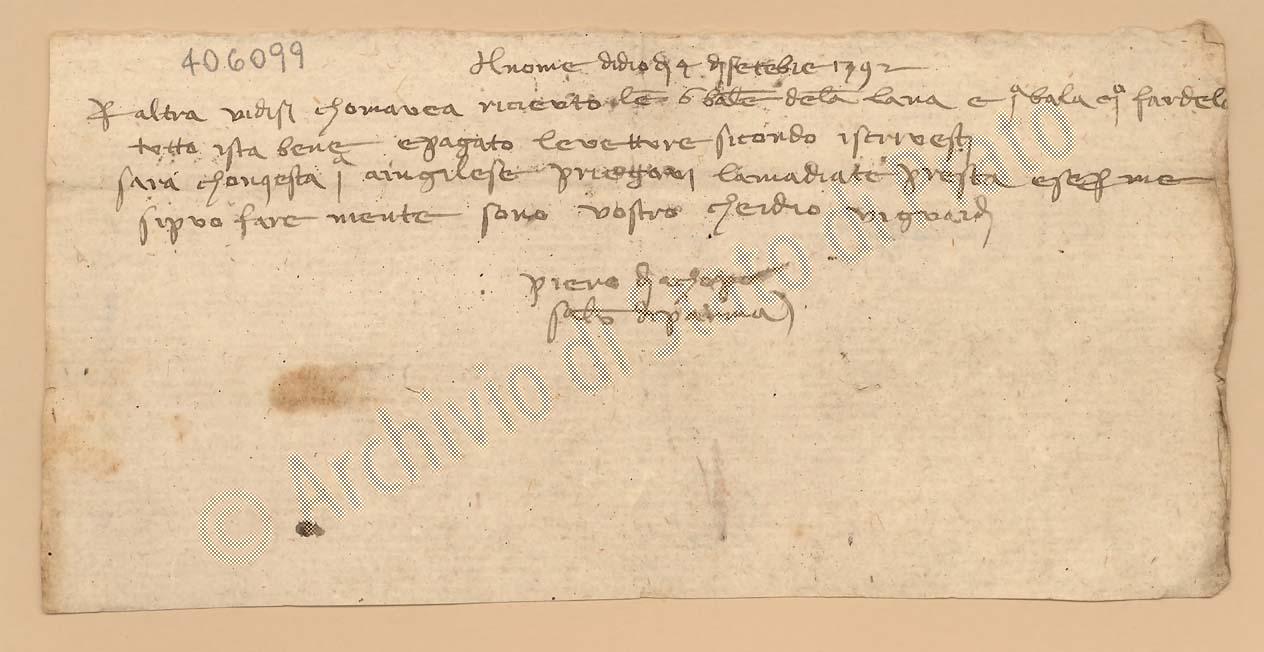 406099
Al nome didio dj 4 dj setebre 1392
P altra vi dissi chom avea ricievto le 6 bale dela lana e j bala e j fardelo
tutto ista bene e pagato le vetture sicondo iscrivesti
sara chon qesta j a inghilese priegovi la madiate presta e se per me
si puo fare niente sono vostro che idio vi guardj
piero dj
di parma
© Archivio di Stato di Prato